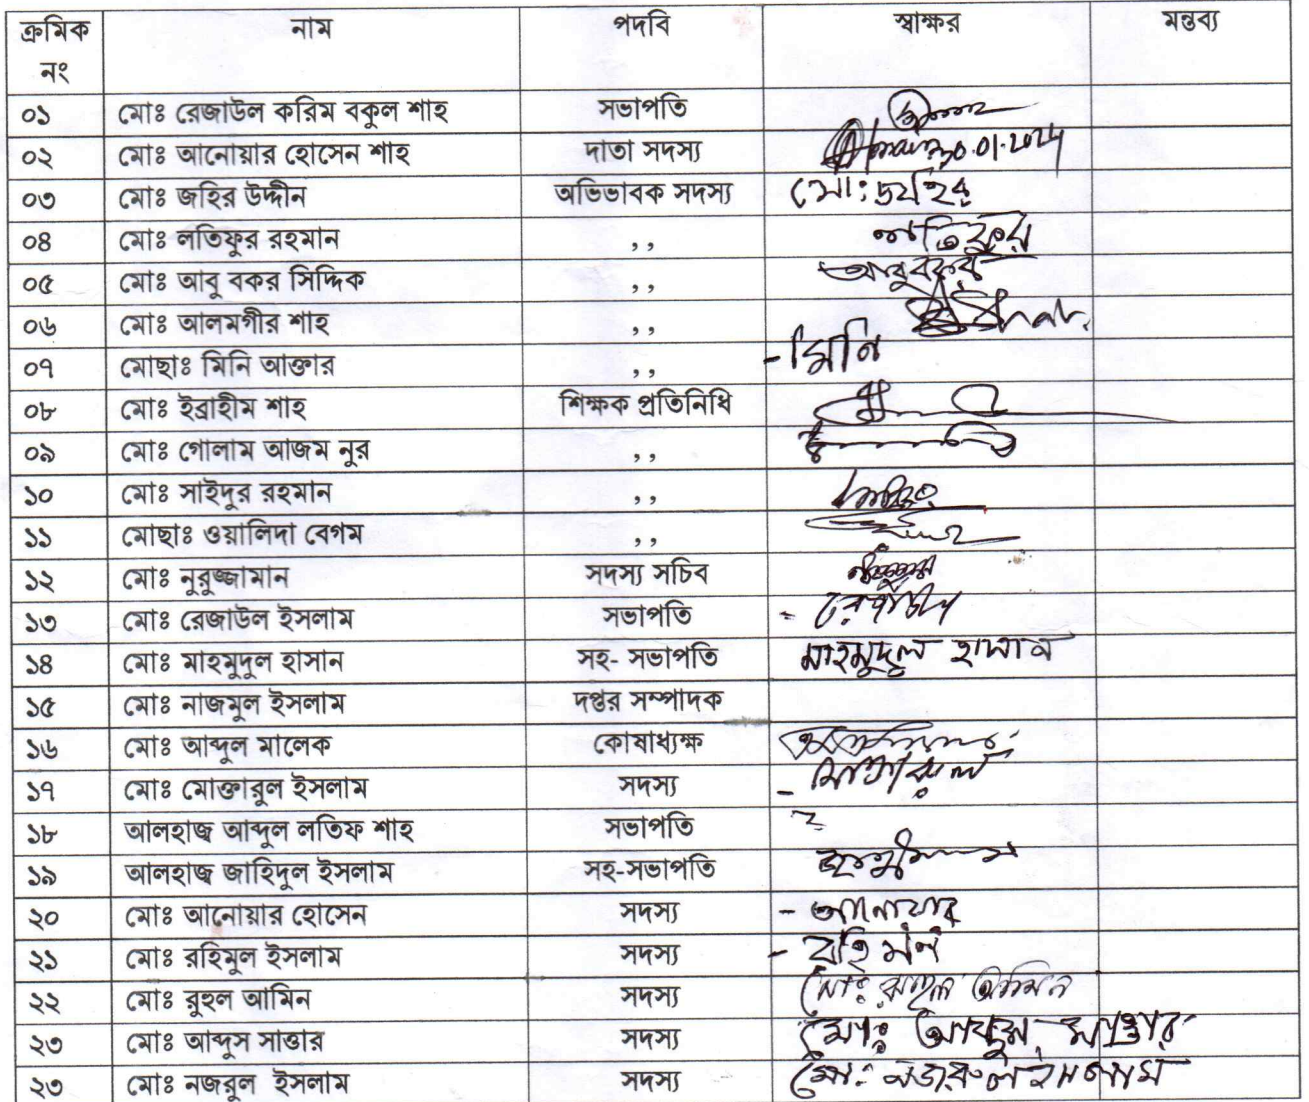 ক্রমিক নং নাম পদবি স্বাক্ষর মন্তব্য
০১ মোঃ রেজাউল করিম বকুল শাহ সভাপতি
০২ মোঃ আনোয়ার হোসেন শাহ দাতা সদস্য 30.01.2024
০৩ মোঃ জহির উদ্দীন অভিভাবক সদস্য মোঃ জহির
০৪ মোঃ লতিফুর রহমান ,, লতিফুর
০৫ মোঃ আবু বকর সিদ্দিক ,, আবুবকর
০৬ মোঃ আলমগীর শাহ ,,
০৭ মোছাঃ মিনি আক্তার ,, - মিনি
০৮ মোঃ ইব্রাহীম শাহ শিক্ষক প্রতিনিধি
০৯ মোঃ গোলাম আজম নুর ,,
১০ মোঃ সাইদুর রহমান ,,
১১ মোছাঃ ওয়ালিদা বেগম ,,
১২ মোঃ নুরুজ্জামান সদস্য সচিব
১৩ মোঃ রেজাউল ইসলাম সভাপতি
১৪ মোঃ মাহমুদুল হাসান সহ- সভাপতি মাহমুদুল হাসান
১৫ মোঃ নাজমুল ইসলাম দপ্তর সম্পাদক
১৬ মোঃ আব্দুল মালেক কোষাধ্যক্ষ
১৭ মোঃ মোক্তারুল ইসলাম সদস্য
১৮ আলহাজ্ব আব্দুল লতিফ শাহ সভাপতি
১৯ আলহাজ্ব জাহিদুল ইসলাম সহ-সভাপতি
২০ মোঃ আনোয়ার হোসেন সদস্য - আনোয়ার
২১ মোঃ রহিমুল ইসলাম সদস্য
২২ মোঃ রুহুল আমিন সদস্য মোঃ রুহুল আমিন
২৩ মোঃ আব্দুস সাত্তার সদস্য মোঃ আব্দুস সাত্তার
২৩ মোঃ নজরুল ইসলাম সদস্য মোঃ নজরুল ইসলাম